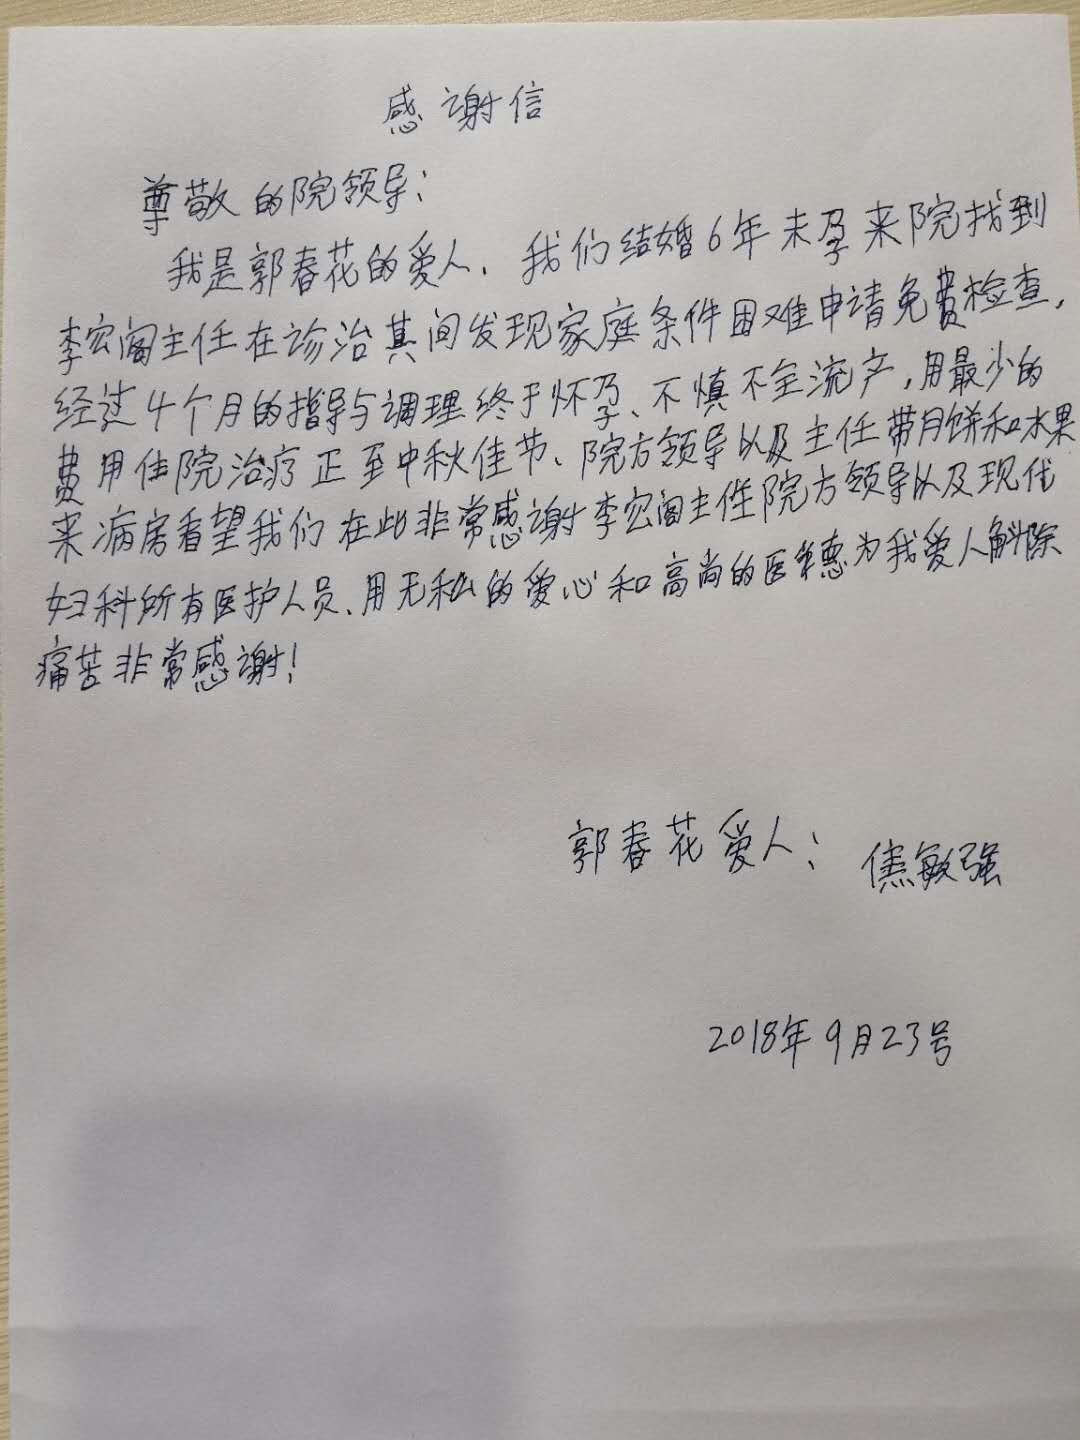 感谢信
尊敬的院领导：
我是郭春花的爱人．我们结婚6年未孕来院找到
李宏阁主任在诊治其间发现家庭条件困难申请免费检查，
经过4个月的指导与调理终于怀孕、不慎不全流产，用最少的
费用住院治疗正至中秋佳节、院方领导以及主任带月饼和水果
来病房看望我们在此非常感谢李宏阁主任院方领导以及现代
妇科所有医护人员、用无私的爱心和高尚的医德为我爱人解除
痛苦非常感谢！
郭春花爱人：焦敏强
2018年9月23号